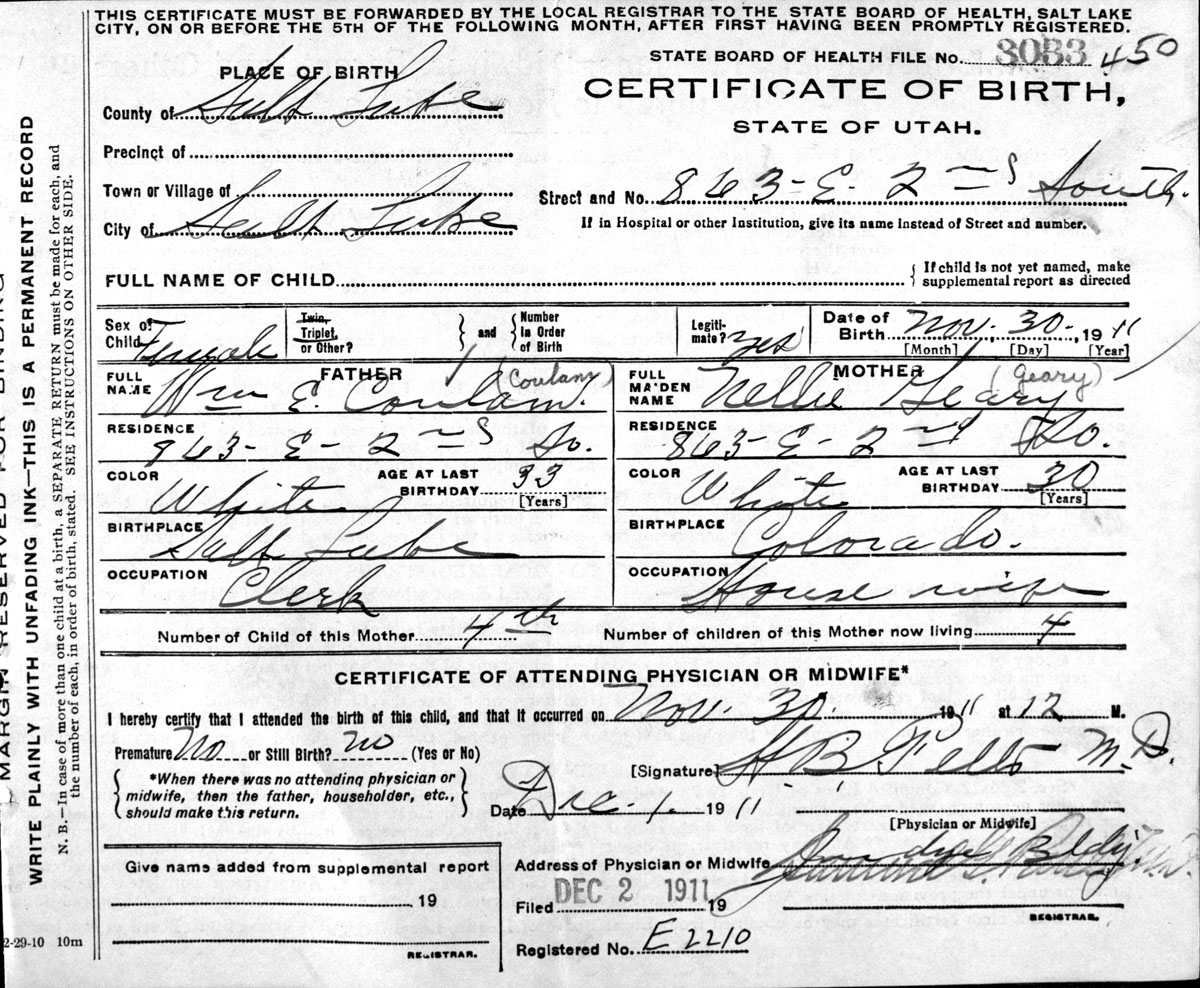 THIS CERTIFICATE MUST BE FORWARDED BY THE LOCAL REGISTRAR TO THE STATE BOARD OF HEALTH, SALT LAKE
CITY, ON OR BEFORE THE 5TH OF THE FOLLOWING MONTH, AFTER FIRST HAVING BEEN PROMPTLY REGISTERED.
STATE BOARD OF HEALTH FILE No. 3033 450
PLACE OF BIRTH
CERTIFICATE OF BIRTH,
STATE OF UTAH.
County of Salt Lake
Precinct of
Town or Village of
City of Salt Lake
Street and No. 863- E. 2nd South.
If in Hospital or other Institution, give its name instead of Street and number.
FULL NAME OF CHILD
If child is not yet named, make
supplemental report as directed
Sex of Child Female
Twin, Triplet, or Other?
and
Number in Order of Birth
Legiti-mate? Yes
Date of Birth Nov. 30. 1911
[Month] [Day] [Year]
FATHER
FULL NAME Wm E. Coulam. (Coulam)
RESIDENCE 863- E- 2nd So.
COLOR White
AGE AT LAST BIRTHDAY 33 [Years]
BIRTHPLACE Salt Lake
OCCUPATION Clerk
MOTHER
FULL MAIDEN NAME Nellie Geary (Geary)
RESIDENCE 863- E- 2nd So.
COLOR White
AGE AT LAST BIRTHDAY 30 [Years]
BIRTHPLACE Colorado.
OCCUPATION House wife
Number of Child of this Mother 4th
Number of children of this Mother now living 4
CERTIFICATE OF ATTENDING PHYSICIAN OR MIDWIFE*
I hereby certify that I attended the birth of this child, and that it occurred on Nov. 30. 1911 at 12 M.
Premature No or Still Birth? no (Yes or No)
[Signature] M.D.
*When there was no attending physician or
midwife, then the father, householder, etc.,
should make this return.
Date Dec. 1. 1911
[Physician or Midwife]
Address of Physician or Midwife
Give name added from supplemental report
19
REGISTRAR.
Filed DEC 2 1911 19
REGISTRAR.
Registered No. E2210
MARGIN RESERVED FOR BINDING
WRITE PLAINLY WITH UNFADING INK—THIS IS A PERMANENT RECORD
N. B.—In case of more than one child at a birth, a SEPARATE RETURN must be made for each, and
the number of each, in order of birth, stated. SEE INSTRUCTIONS ON OTHER SIDE.
2-29-10 10m